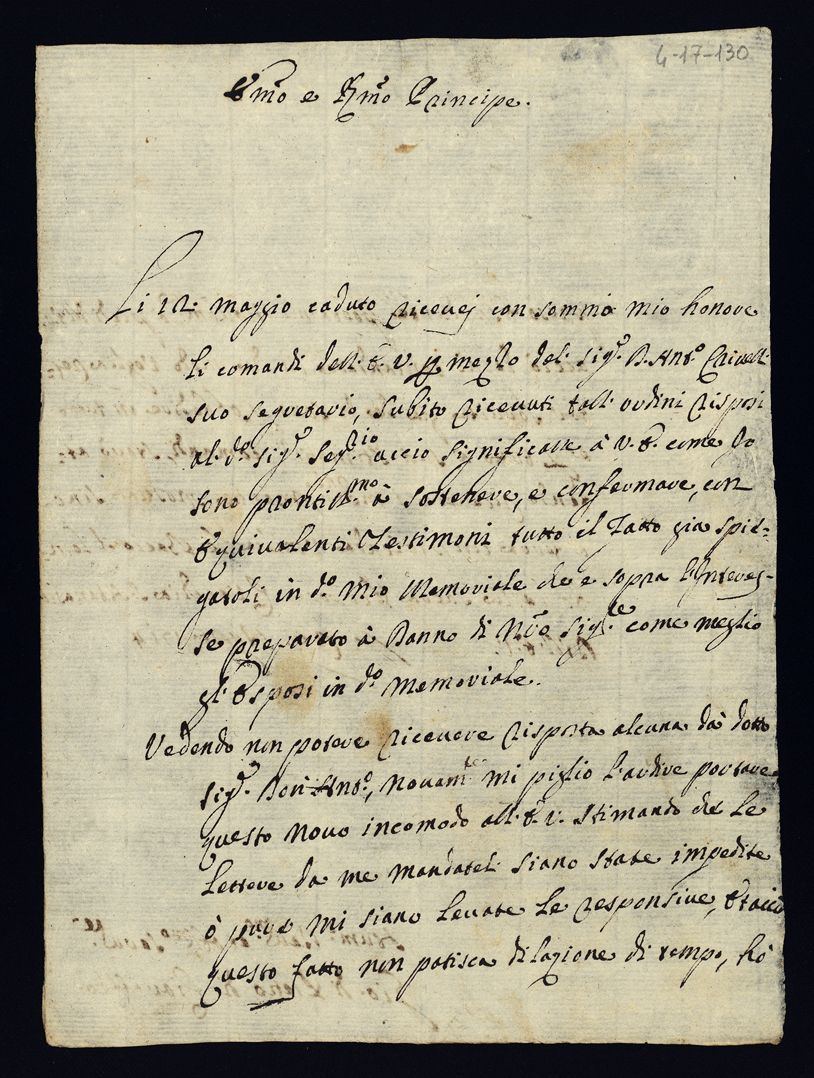 4-17-130
Em̃o e Rm̃o Principe.
Li 12. maggio caduto ricevej con sommo mio honore
li comandi dell. E. V. p meglo del. sigr. D. Anto. Crivell.
suo segretario, subito ricevuti tall. ordini risposi
al. do. sigr. Segrio. accio significasse à V. E. come Jo
sono prontissmo. à sostenere, e confermare, con
Equivalenti Testimoni tutto il Fatto gia spie=
gatoli in do. mio Memoriale che è sopra l'Interes-
se preparato à Danno di Nr̃o Sigre. come meglio
gl. Esposi in do. Memoriale.
Vedendo non potere ricevere risposta alcuna dà dotto
sigr. Don Anto., novamte. mi piglio l'ardire portare
questo novo incomodo all. E. V. stimando che le
lettere da me mandatel. siano state impedite
ò pure mi siano levate le responsive, E acciò
questo fatto non patisca dilazione di tempo, hò